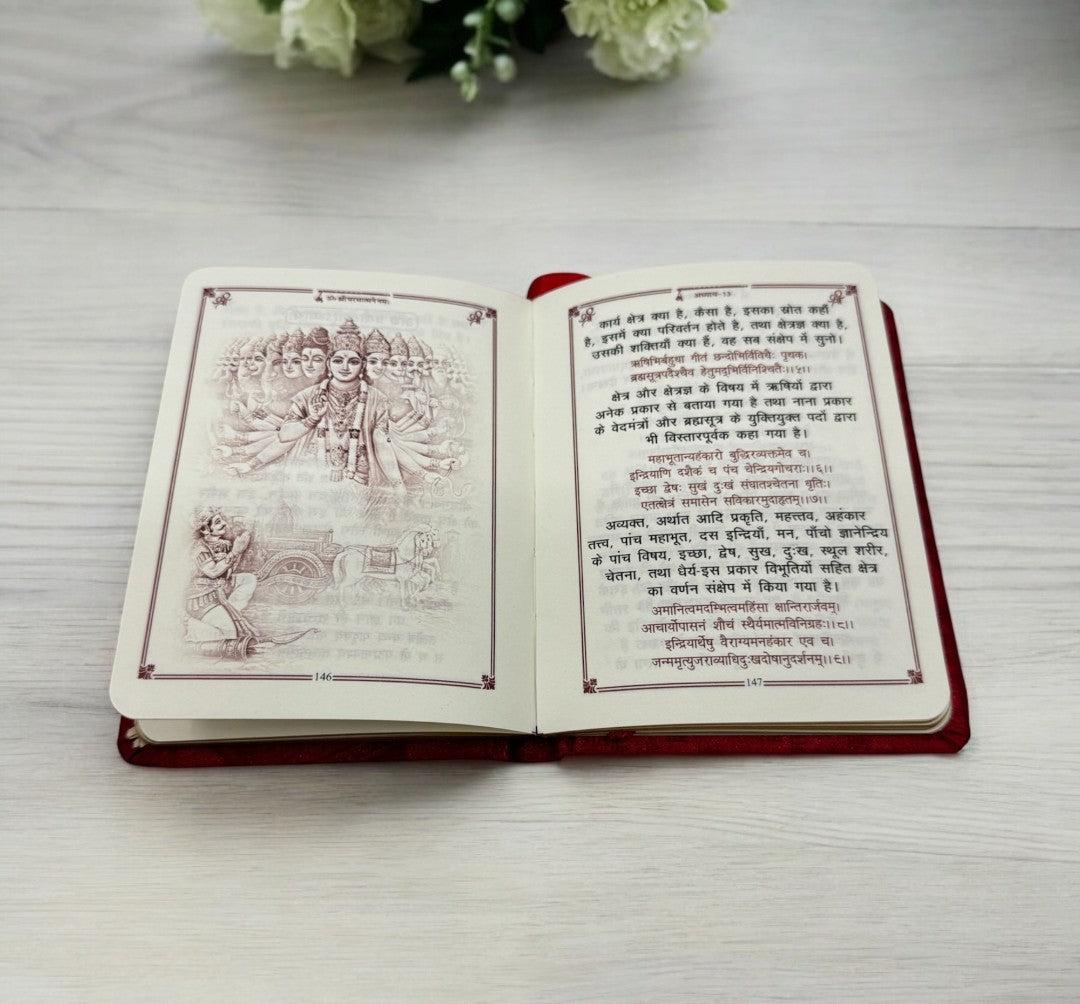 ॐ श्री परमात्मने नमः
146
अध्याय-13
कार्य क्षेत्र क्या है, कैसा है, इसका स्रोत कहाँ
है, इसमें क्या परिवर्तन होते है, तथा क्षेत्रज्ञ क्या है,
उसकी शक्तियाँ क्या हैं, वह सब संक्षेप में सुनो।
ऋषिभिर्बहुधा गीतं छन्दोभिर्विविधैः पृथक।
ब्रह्मसूत्रपदैश्चैव हेतुमद्भिर्विनिश्चितैः।।५।।
क्षेत्र और क्षेत्रज्ञ के विषय में ऋषियों द्वारा
अनेक प्रकार से बताया गया है तथा नाना प्रकार
के वेदमंत्रों और ब्रह्मसूत्र के युक्तियुक्त पदों द्वारा
भी विस्तारपूर्वक कहा गया है।
महाभूतान्यहंकारो बुद्धिरव्यक्तमेव च।
इन्द्रियाणि दशैकं च पंच चेन्द्रियगोचराः।।६।।
इच्छा द्वेषः सुखं दुःखं संघातश्चेतना धृतिः।
एतत्क्षेत्रं समासेन सविकारमुदाहृतम्।।७।।
अव्यक्त, अर्थात आदि प्रकृति, महत्तव, अहंकार
तत्त्व, पांच महाभूत, दस इन्द्रियाँ, मन, पाँचो ज्ञानेन्द्रिय
के पांच विषय, इच्छा, द्वेष, सुख, दुःख, स्थूल शरीर,
चेतना, तथा धैर्य-इस प्रकार विभूतियों सहित क्षेत्र
का वर्णन संक्षेप में किया गया है।
अमानित्वमदम्भित्वमहिंसा क्षान्तिरार्जवम्।
आचार्योपासनं शौचं स्थैर्यमात्मविनिग्रहः।।८।।
इन्द्रियार्थेषु वैराग्यमनहंकार एव च।
जन्ममृत्युजराव्याधिदुःखदोषानुदर्शनम्।।९।।
147